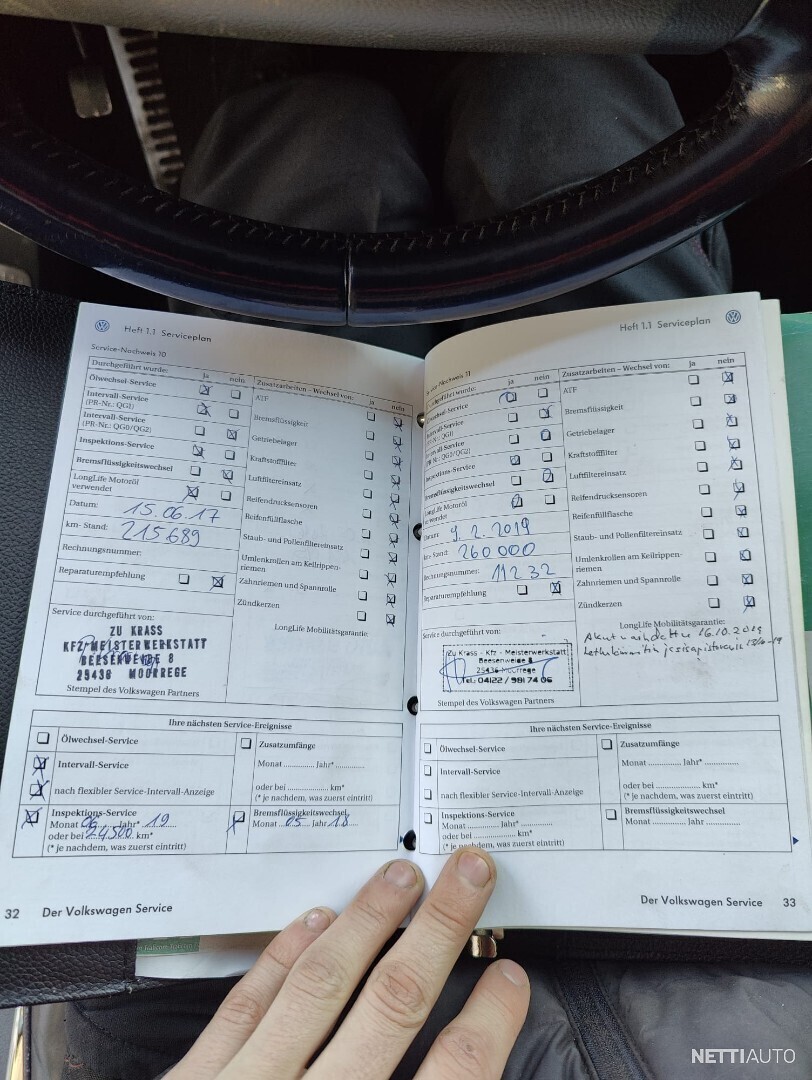 Heft 1.1 Serviceplan
Service-Nachweis 10
Durchgeführt wurde:
ja
nein
Ölwechsel-Service
Intervall-Service
(PR-Nr.: QG1)
Intervall-Service
(PR-Nr.: QG0/QG2)
Inspektions-Service
Bremsflüssigkeitswechsel
LongLife Motoröl
verwendet
Datum: 15.06.17
km-Stand: 215689
Rechnungsnummer:
Reparaturempfehlung
Service durchgeführt von:
ZU KRASS
KFZ/MEISTERWERKSTATT
BEESENWEIDE 8
25436 MOORREGE
Stempel des Volkswagen Partners
Zusatzarbeiten - Wechsel von:
ja
nein
ATF
Bremsflüssigkeit
Getriebelager
Kraftstofffilter
Luftfiltereinsatz
Reifendrucksensoren
Reifenfüllflasche
Staub- und Pollenfiltereinsatz
Umlenkrollen am Keilrippen-
riemen
Zahnriemen und Spannrolle
Zündkerzen
LongLife Mobilitätsgarantie:
Ihre nächsten Service-Ereignisse
Ölwechsel-Service
Intervall-Service
nach flexibler Service-Intervall-Anzeige
Inspektions-Service
Monat 06 Jahr* 19
oder bei 24500 km*
(* je nachdem, was zuerst eintritt)
Zusatzumfänge
Monat .............. Jahr* ..............
oder bei .............. km*
(* je nachdem, was zuerst eintritt)
Bremsflüssigkeitswechsel
Monat 05 Jahr 18
32 Der Volkswagen Service
Heft 1.1 Serviceplan
Service-Nachweis 11
Durchgeführt wurde:
ja
nein
Ölwechsel-Service
Intervall-Service
(PR-Nr.: QG1)
Intervall-Service
(PR-Nr.: QG0/QG2)
Inspektions-Service
Bremsflüssigkeitswechsel
LongLife Motoröl
verwendet
Datum: 9.2.2019
km-Stand: 260000
Rechnungsnummer: 11232
Reparaturempfehlung
Service durchgeführt von:
Zu Krass - Kfz - Meisterwerkstatt
Beesenweide 8
25436 Moorrege
Tel.: 04122 / 981 74 06
Stempel des Volkswagen Partners
Zusatzarbeiten - Wechsel von:
ja
nein
ATF
Bremsflüssigkeit
Getriebelager
Kraftstofffilter
Luftfiltereinsatz
Reifendrucksensoren
Reifenfüllflasche
Staub- und Pollenfiltereinsatz
Umlenkrollen am Keilrippen-
riemen
Zahnriemen und Spannrolle
Zündkerzen
LongLife Mobilitätsgarantie:
Akut vaihdettu 16.10.2019
Ihre nächsten Service-Ereignisse
Ölwechsel-Service
Intervall-Service
nach flexibler Service-Intervall-Anzeige
Inspektions-Service
Monat .............. Jahr* ..............
oder bei .............. km*
(* je nachdem, was zuerst eintritt)
Zusatzumfänge
Monat .............. Jahr* ..............
oder bei .............. km*
(* je nachdem, was zuerst eintritt)
Bremsflüssigkeitswechsel
Monat .............. Jahr ..............
Der Volkswagen Service 33
NETTIAUTO